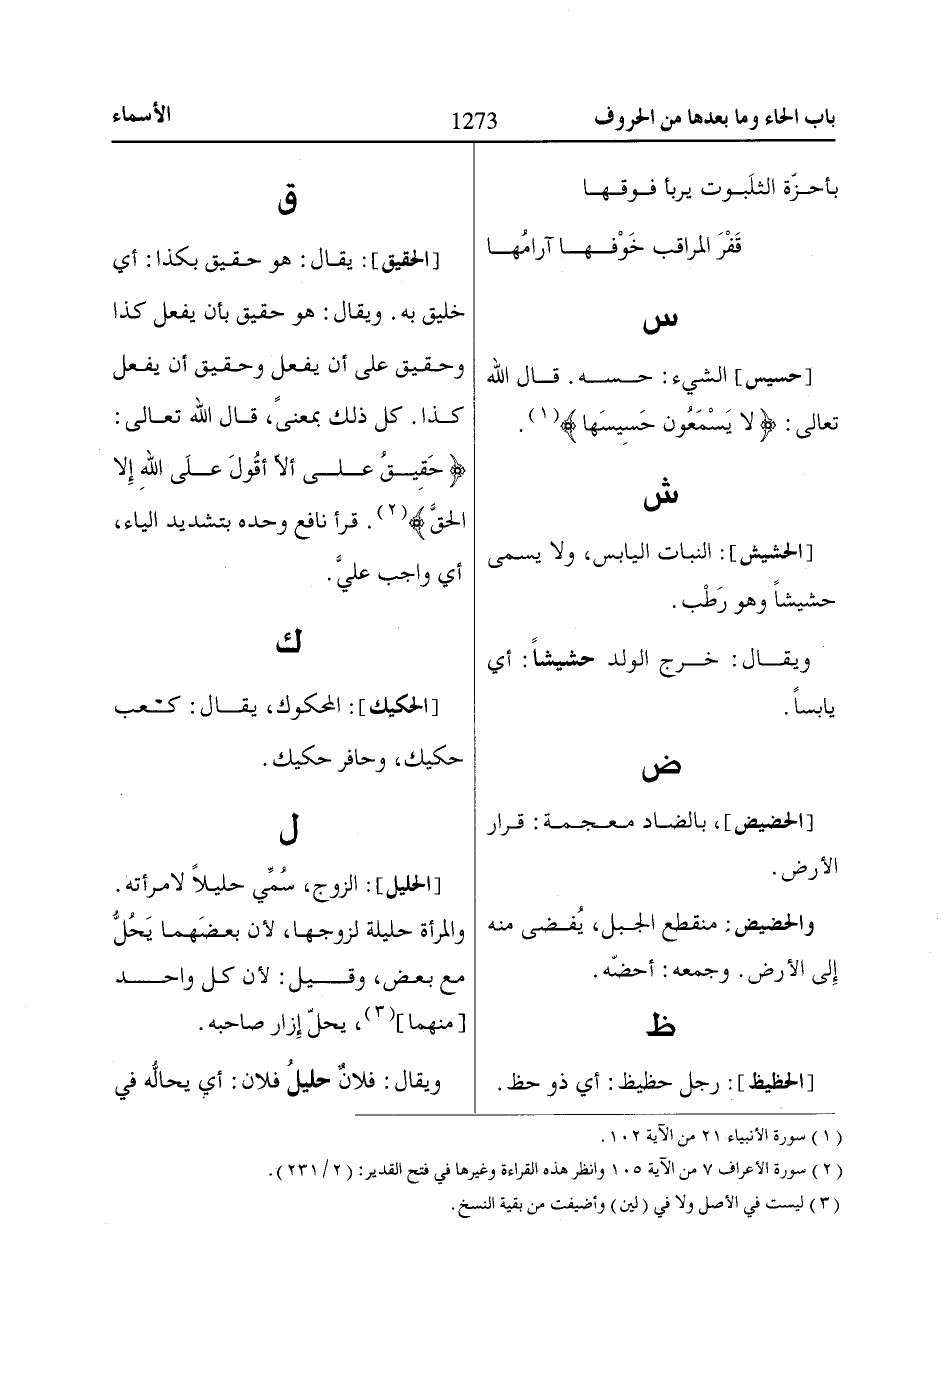 باب الحاء وما بعدها من الحروف
1273
الأسماء
بأحزّة الثلَبوت يربأ فوقها
قَفْرَ المراقب خَوْفها آرامُها
س
[حسيس] الشيء: حسه. قال الله
تعالى: ﴿لا يَسْمَعُون حَسِيسَها﴾(١).
ش
[الحشيش]: النبات اليابس، ولا يسمى
حشيشاً وهو رَطْب.
ويقال: خرج الولد حشيشاً: أي
يابساً.
ض
[الحضيض]، بالضاد معجمة: قرار
الأرض.
والحضيض: منقطع الجبل، يُفضى منه
إلى الأرض. وجمعه: أحضّه.
ظ
[الحظيظ]: رجل حظيظ: أي ذو حظ.
ق
[الحقيق]: يقال: هو حقيق بكذا: أي
خليق به. ويقال: هو حقيق بأن يفعل كذا
وحقيق على أن يفعل وحقيق أن يفعل
كذا. كل ذلك بمعنىً، قال الله تعالى:
﴿حَقِيقُ على ألاّ أقُولَ علَى اللهِ إلا
الحقَّ﴾(٢). قرأ نافع وحده بتشديد الياء،
أي واجب عليَّ.
ك
[الحكيك]: المحكوك، يقال: كَعب
حكيك، وحافر حكيك.
ل
[الحليل]: الزوج، سُمِّي حليلاً لامرأته.
والمرأة حليلة لزوجها، لأن بعضَهما يَحُلُّ
مع بعض، وقيل: لأن كل واحد
[منهما](٣)، يحلّ إزار صاحبه.
ويقال: فلانٌ حليلُ فلان: أي يحالُّه في
(١) سورة الأنبياء ٢١ من الآية ١٠٢.
(٢) سورة الأعراف ٧ من الآية ١٠٥ وانظر هذه القراءة وغيرها في فتح القدير: (٢/ ٢٣١).
(٣) ليست في الأصل ولا في (لين) وأضيفت من بقية النسخ.